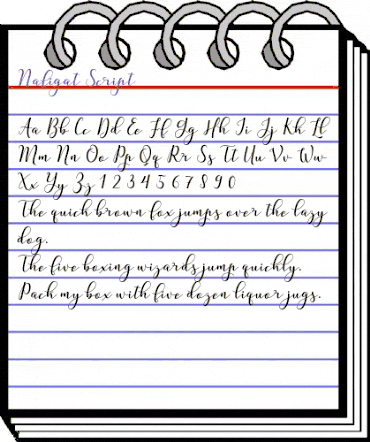 Nafigat Script
Aa Bb Cc Dd Ee Ff Gg Hh Ii Jj Kk Ll
Mm Nn Oo Pp Qq Rr Ss Tt Uu Vv Ww
Xx Yy Zz 1 2 3 4 5 6 7 8 9 0
The quick brown fox jumps over the lazy
dog.
The five boxing wizards jump quickly.
Pack my box with five dozen liquor jugs.